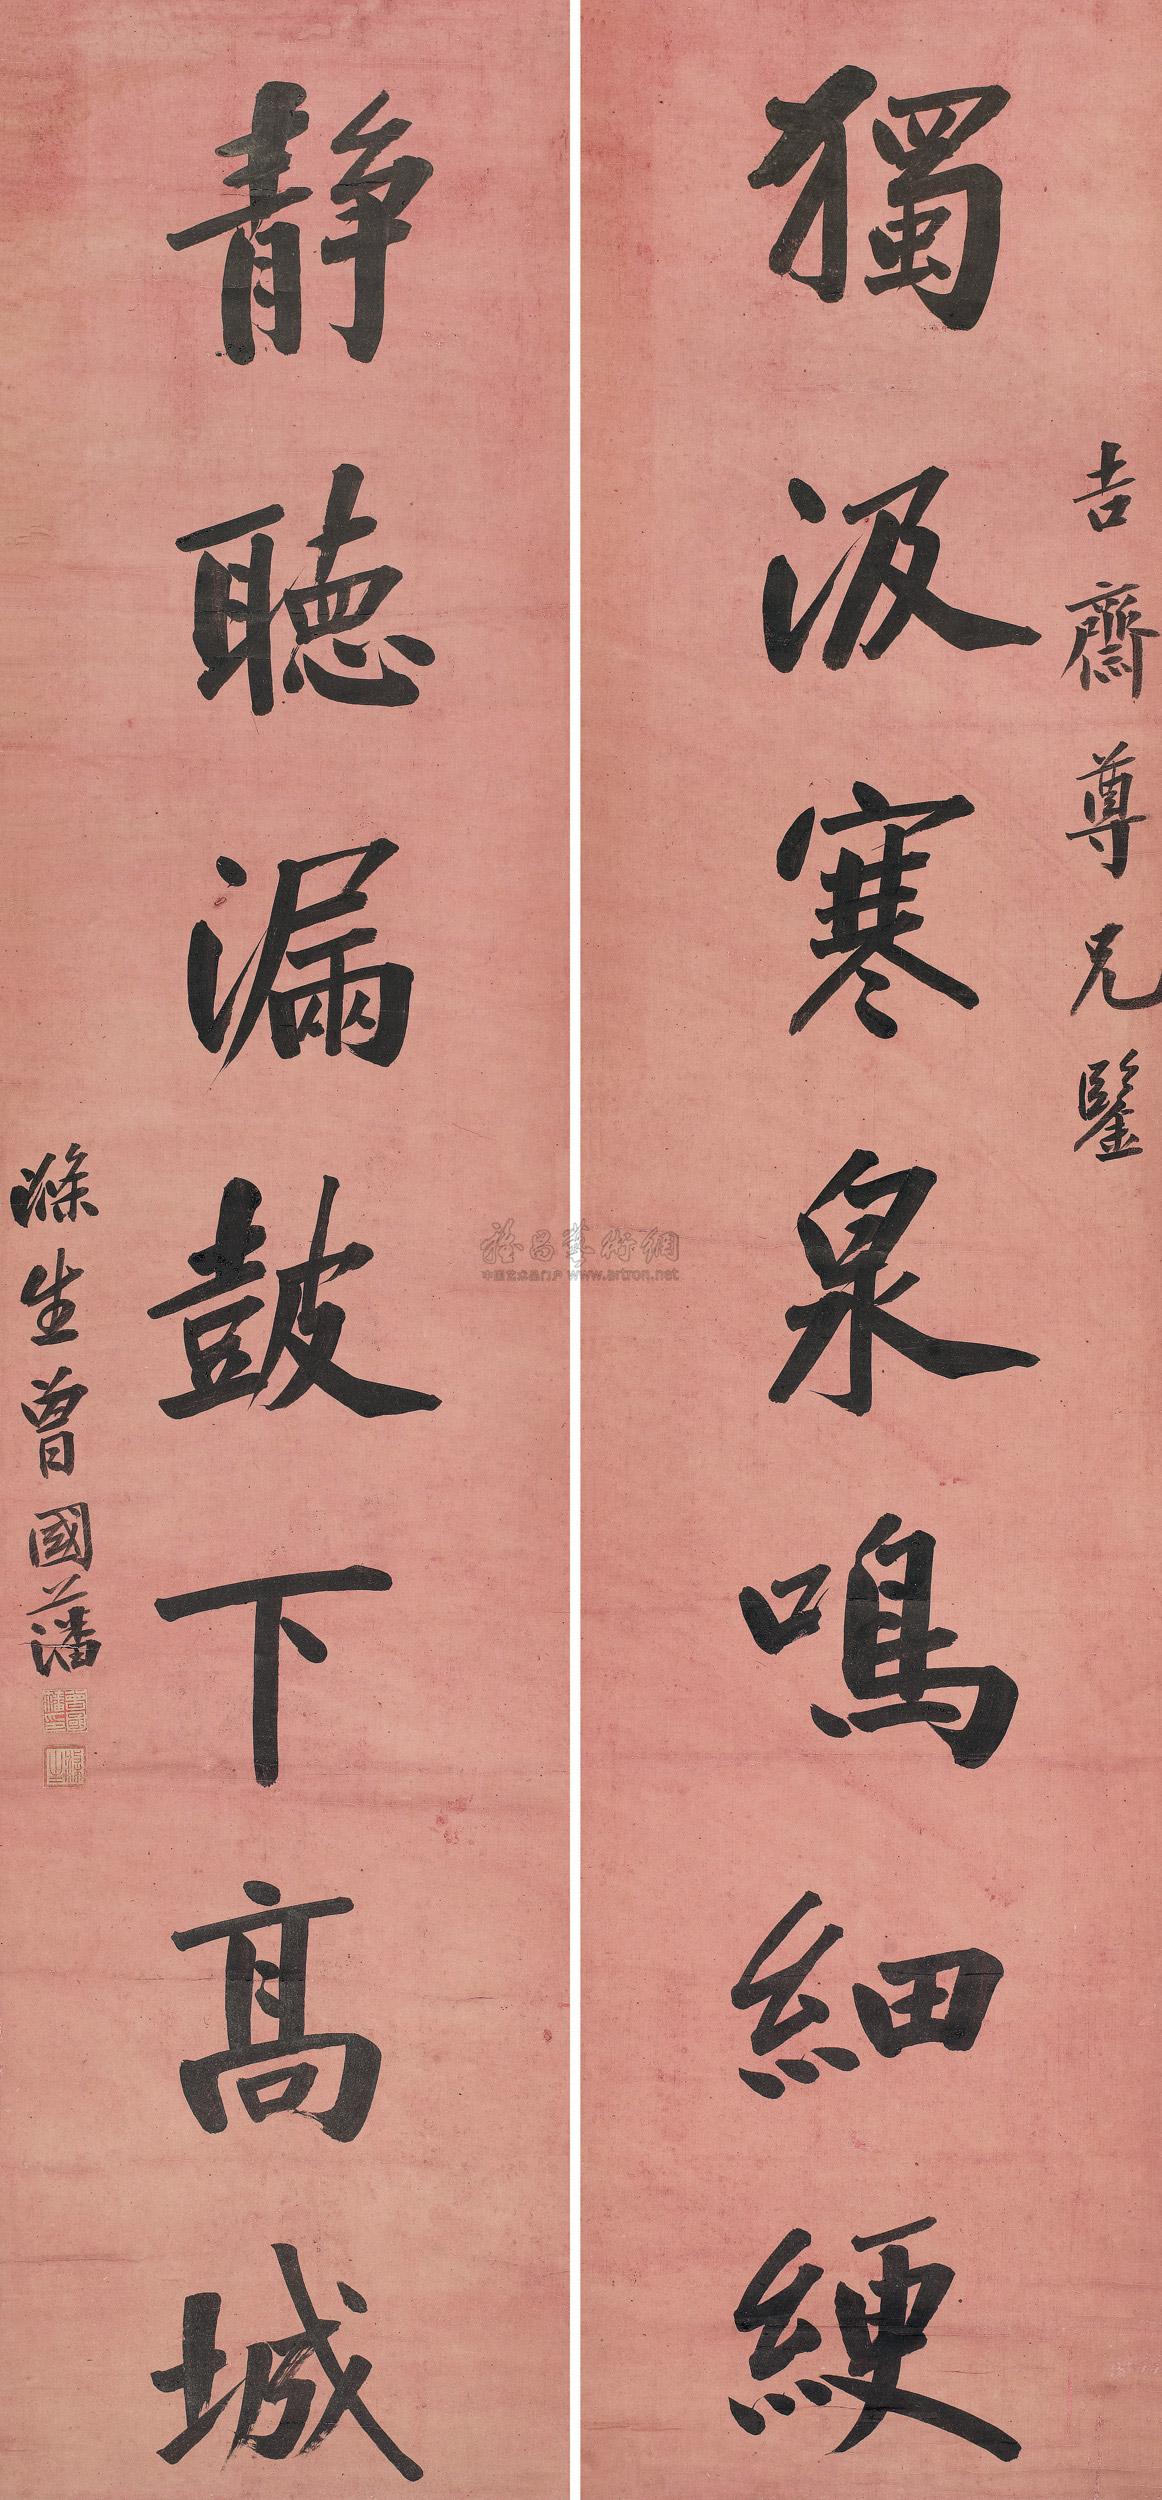 吉齋尊兄鑒
獨汲寒泉鳴細綆
靜聽漏鼓下高城
滌生曾國藩
曾國藩印
滌生
雅昌藝術網
中国艺术品门户 www.artron.net